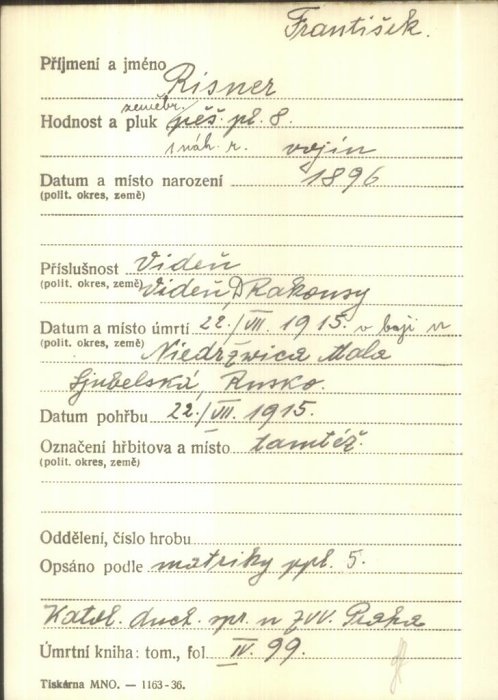 František.
Příjmení a jméno Risner
zeměbr.
Hodnost a pluk pěš. pl. 8.
1 náh. r. vojín
Datum a místo narození 1896
(polit. okres, země)
Příslušnost Videň
(polit. okres, země) Videň, D. Rakousy
Datum a místo úmrtí 22./VII. 1915. v boji u
(polit. okres, země) Niedržwica Mala
Ljubelská, Rusko.
Datum pohřbu 22./VII. 1915.
Označení hřbitova a místo tamtéž.
(polit. okres, země)
Oddělení, číslo hrobu
Opsáno podle matriky ppl. 5.
Katol. duch. spr. u ZVV. Praha
Úmrtní kniha: tom., fol. IV. 99.
Tiskárna MNO. — 1163-36.